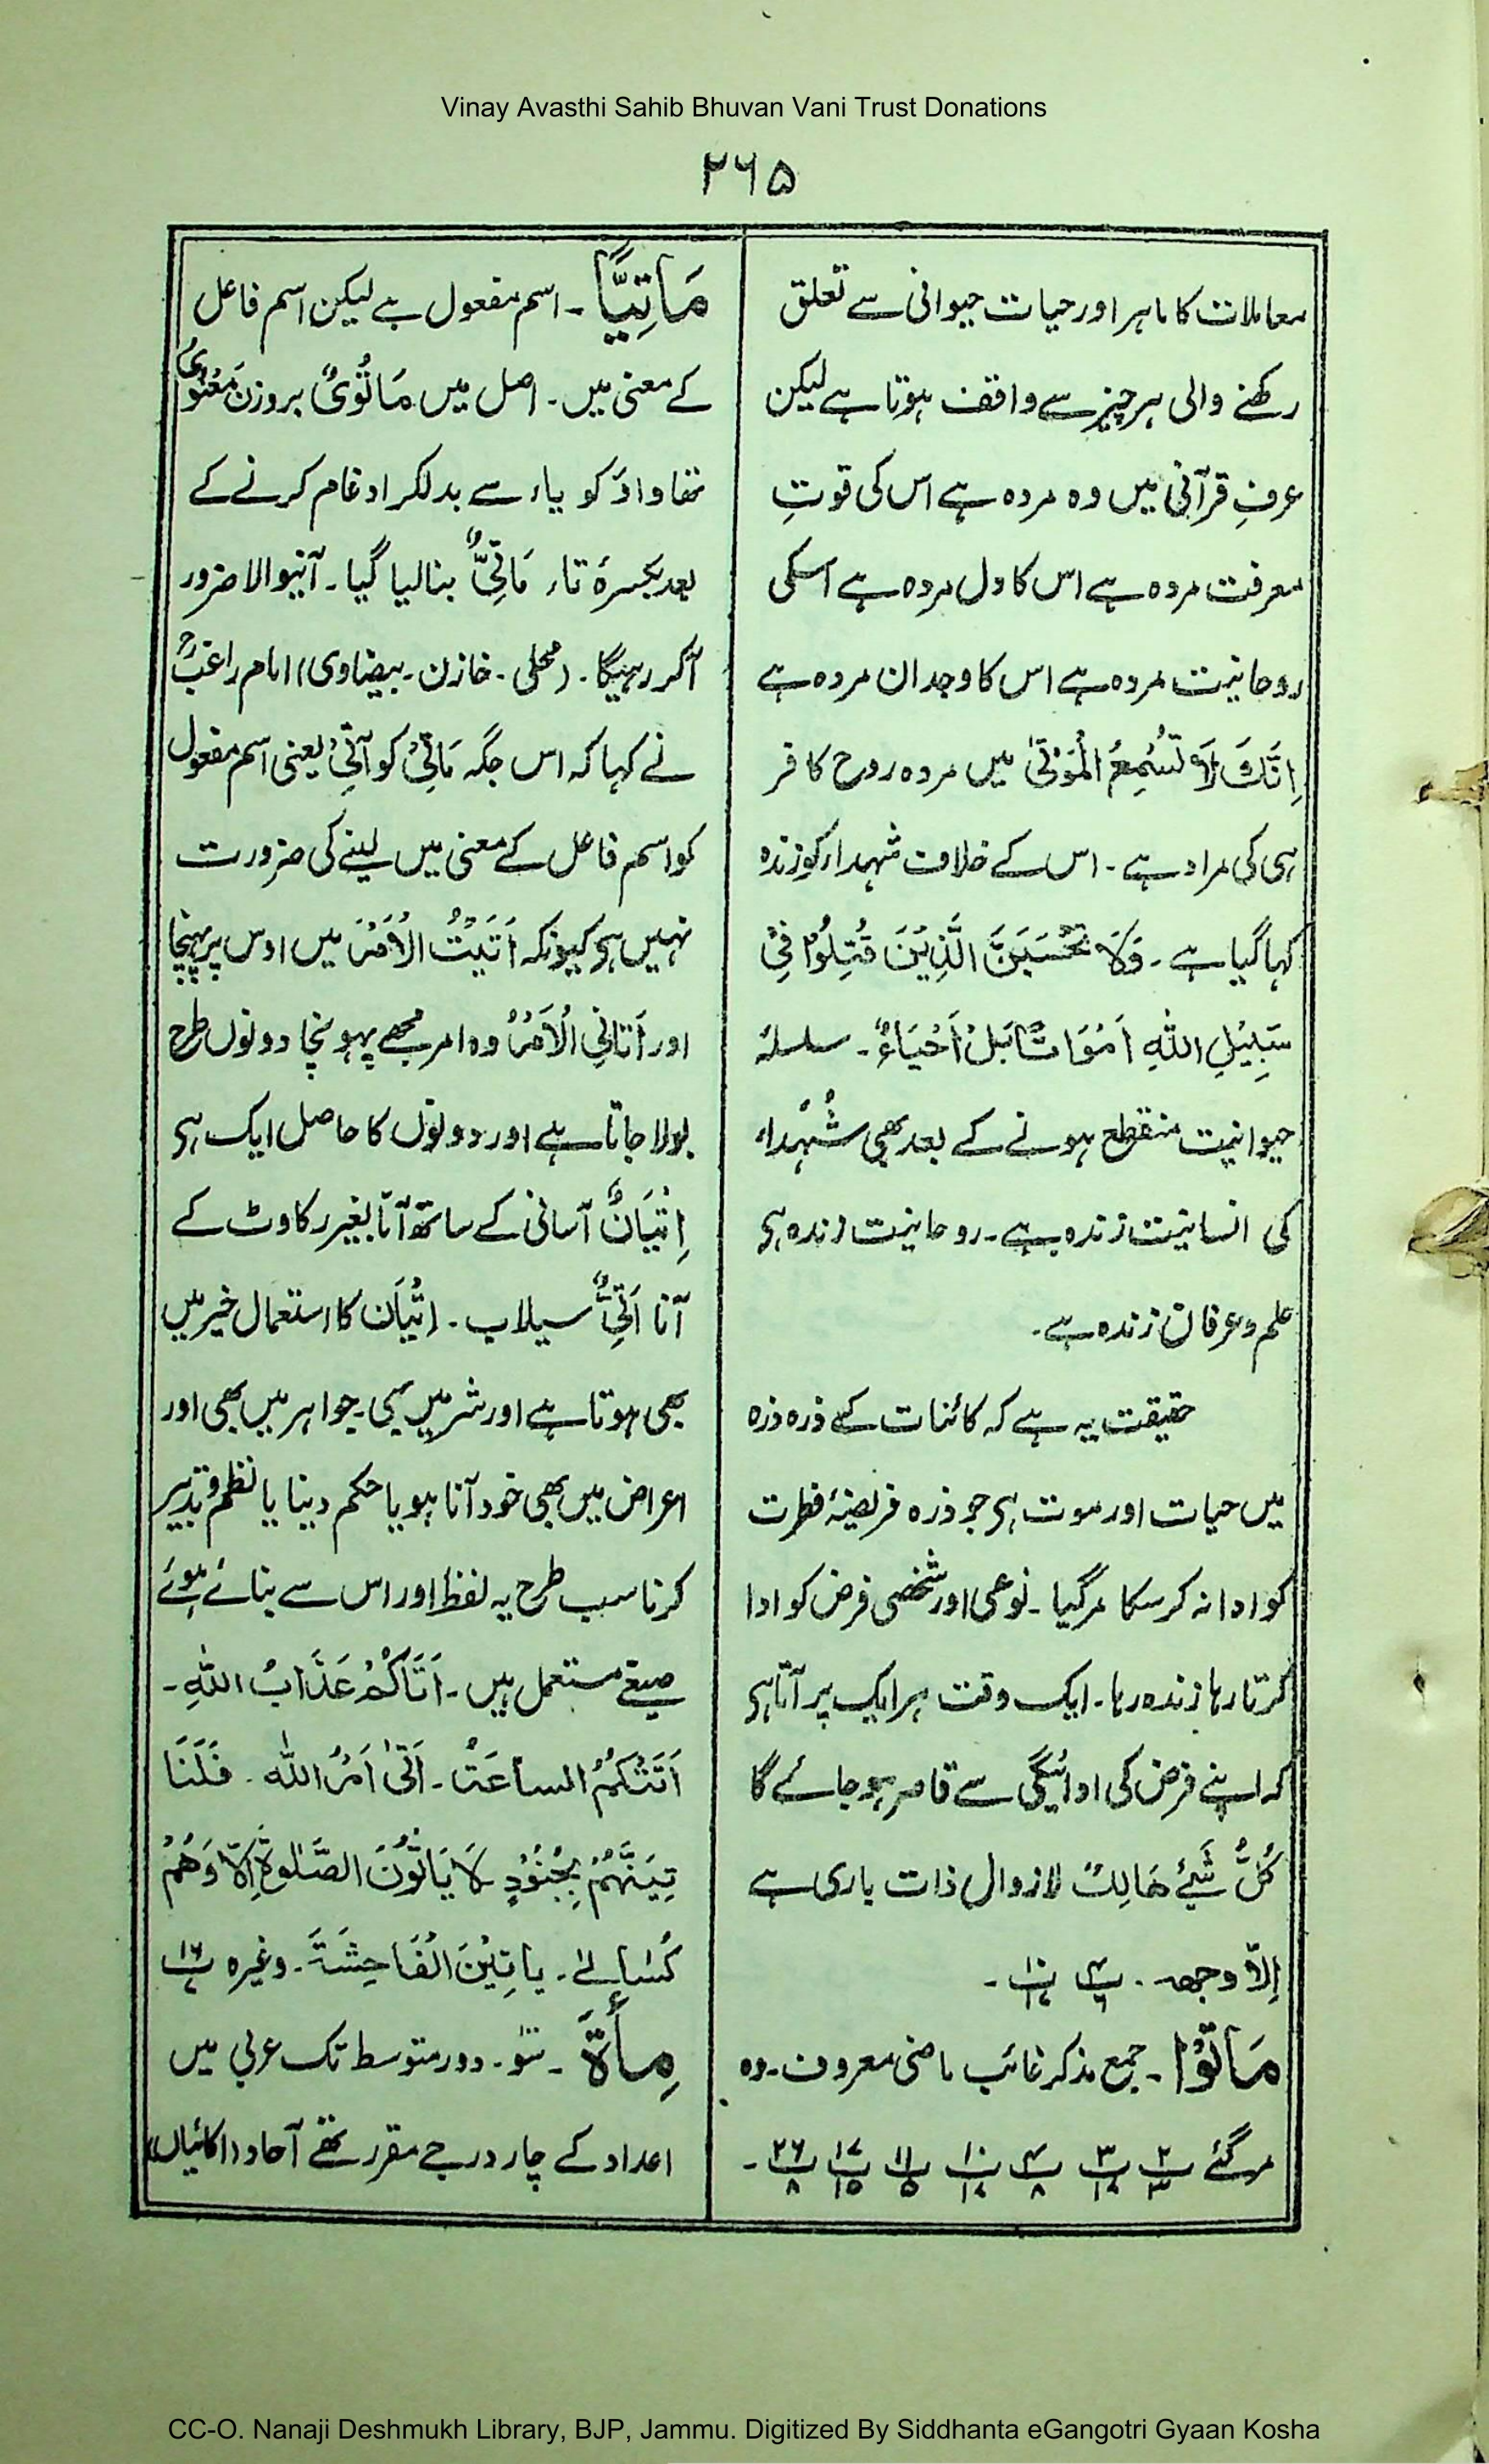 Vinay Avasthi Sahib Bhuvan Vani Trust Donations
۲۶۵
معاملات کا ماہر اور حیات حیوانی سے تعلق
رکھنے والی ہر چیز سے واقف ہوتا ہے لیکن
عرفِ قرآنی میں وہ مردہ ہے اس کی قوتِ
معرفت مردہ ہے اس کا دل مردہ ہے اسکی
روحانیت مردہ ہے اس کا وجدان مردہ ہے
اِنَّكَ لَا تُسْمِعُ الْمَوْتٰی میں مردہ روح کافر
ہی کی مراد ہے۔ اس کے خلاف شہداء کو زندہ
کہا گیا ہے۔ وَلَا تَحْسَبَنَّ الَّذِيْنَ قُتِلُوْا فِيْ
سَبِيْلِ اللّٰهِ اَمْوَاتًا بَلْ اَحْيَاءٌ۔ سلسلۂ
حیوانیت منقطع ہونے کے بعد بھی شُہَداء
کی انسانیت زندہ ہے۔ روحانیت زندہ ہی
علم و عرفان زندہ ہے۔
حقیقت یہ ہے کہ کائنات کے ذرہ ذرہ
میں حیات اور موت ہی جو ذرہ فریضۂ فطرت
کو ادا نہ کر سکا مر گیا۔ نوعی اور شخصی فرض کو ادا
کرتا رہا زندہ رہا۔ ایک وقت ہر ایک پر آتا ہی
کہ اپنے فرض کی ادائیگی سے قاصر ہو جائے گا
كُلُّ شَيْئٍ هَالِكٌ لازوال ذات باری ہے
اِلاَّ وجهه۔
مَاتُوْا۔ جمع مذکر غائب ماضی معروف۔ وہ
مر گئے
مَاتِيًّا۔ اسم مفعول ہے لیکن اسم فاعل
کے معنی میں۔ اصل میں مَاتُوْیٌ بروزن مَفْعُوْلٌ
تھا واؤ کو یاء سے بدلکر ادغام کرنے کے
بعد بکسرۂ تاء مَاتِیٌّ بنا لیا گیا۔ آنیوالا ضرور
آکر رہیگا۔ (محلی۔ خازن۔ بیضاوی) امام راغبؒ
نے کہا کہ اس جگہ مَاتِیْ کو آتِیْ یعنی اسم مفعول
کو اسم فاعل کے معنی میں لینے کی ضرورت
نہیں ہی کیونکہ اَتَيْتُ الْاَمْرَ میں اوس پر پہنچا
اور اَتَانِي الْاَمْرُ وہ امر مجھے پہونچا دونوں طرح
بولا جاتا ہے اور دونوں کا حاصل ایک ہی
اِتْيَانٌ آسانی کے ساتھ آنا بغیر رکاوٹ کے
آنا اَتِیٌّ سیلاب۔ اِتْیَان کا استعمال خیر میں
بھی ہوتا ہے اور شر میں بھی۔ جواہر میں بھی اور
اعراض میں بھی خود آنا ہو یا حکم دینا یا نظم و تدبیر
کرنا سب طرح یہ لفظ اور اس سے بنائے ہوئے
صیغے مستعمل ہیں۔ اَتَاكُمْ عَذَابُ اللّٰهِ۔
اَتَتْكُمُ الساعَةُ۔ اَتٰی اَمْرُ اللّٰه۔ فَلَنَا
تِيَنَّهُمْ بِجُنُوْدٍ لَا يَاتُوْنَ الصَّلٰوةَ اِلَّا وَهُمْ
كُسَالٰی۔ يَاتِيْنَ الْفَاحِشَةَ۔ وغیرہ
مِأَةٌ۔ سَو۔ دور متوسط تک عربی میں
اعداد کے چار درجے مقرر تھے آحاد (اکائیاں)
CC-O. Nanaji Deshmukh Library, BJP, Jammu. Digitized By Siddhanta eGangotri Gyaan Kosha